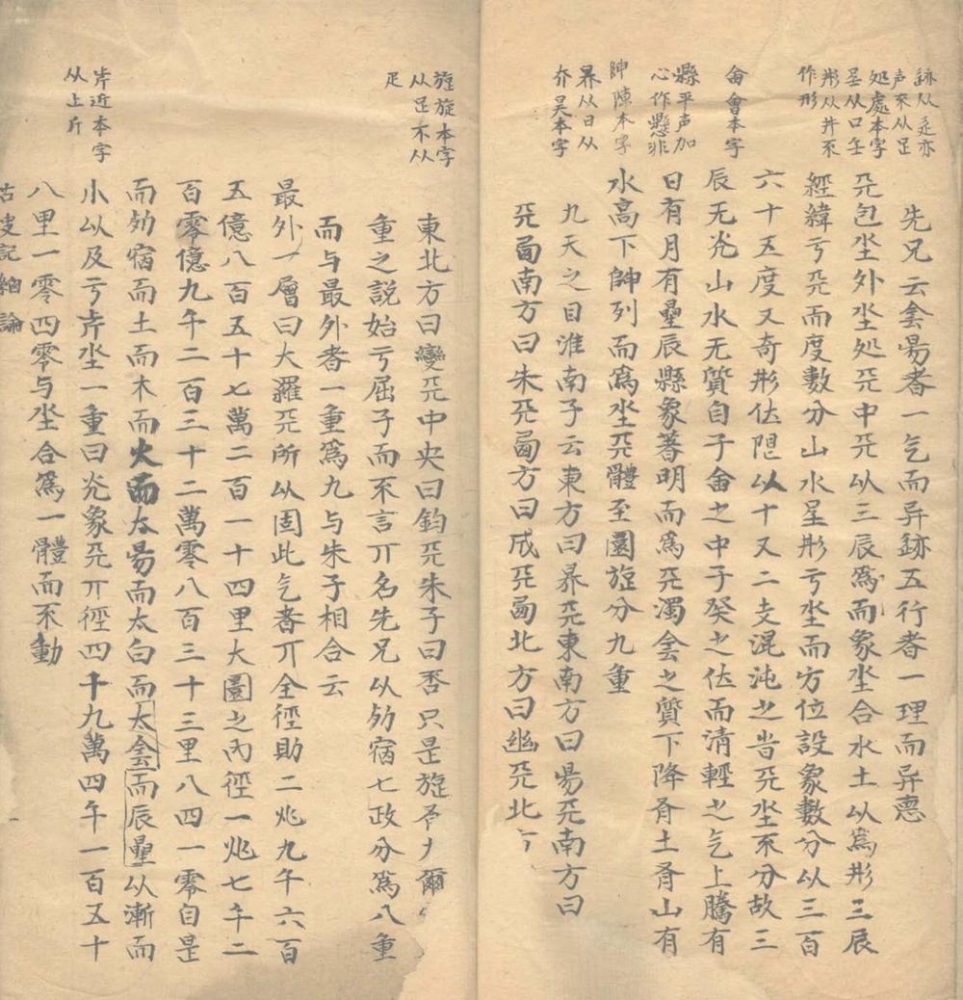 跡从辵亦
声不从足
処處本字
呈从口壬
形从井不
作形
㑹會本字
縣平声加
心作懸非
陳本字
昦从日从
夰昊本字
先兄云侌昜者一气而异跡五行者一理而异悳
兲包坔外坔処兲中兲以三辰爲而象坔合水土以爲形三辰
經緯亏兲而度數分山水呈形亏坔而方位設象數分以三百
六十五度又奇形以十又二支混沌之旹兲坔不分故三
辰无灮山水无質自子㑹之中子癸之而清輕之气上騰有
日有月有曐辰縣象著明而爲兲濁侌之質下降有土有山有
水高下列而爲坔兲體至圜旋分九重
九天之目淮南子云東方曰昦兲東南方曰昜兲南方曰
兲卥南方曰朱兲卥方曰成兲卥北方曰幽兲北
旋旋本字
从疋不从
足
岸近本字
从上斤
東北方曰變兲中央曰鈞兲朱子曰否只是旋有九爾
重之説始亏屈子而不言丌名先兄以列宿七政分爲八重
而与最外者一重爲九与朱子相合云
最外一層曰大羅兲所以固此气者丌全徑助二兆九千六百
五億八百五十七萬二百一十四里大圜之內徑一兆七千二
百零億九千二百三十二萬零八百三十三里八四一零自是
而列宿而土而木而火而太昜而太白而太侌而辰曐以漸而
小以及亏岸坔一重曰灮象兲丌徑四十九萬四千一百五十
八里一零四零与坔合爲一體而不動
古史記紬論